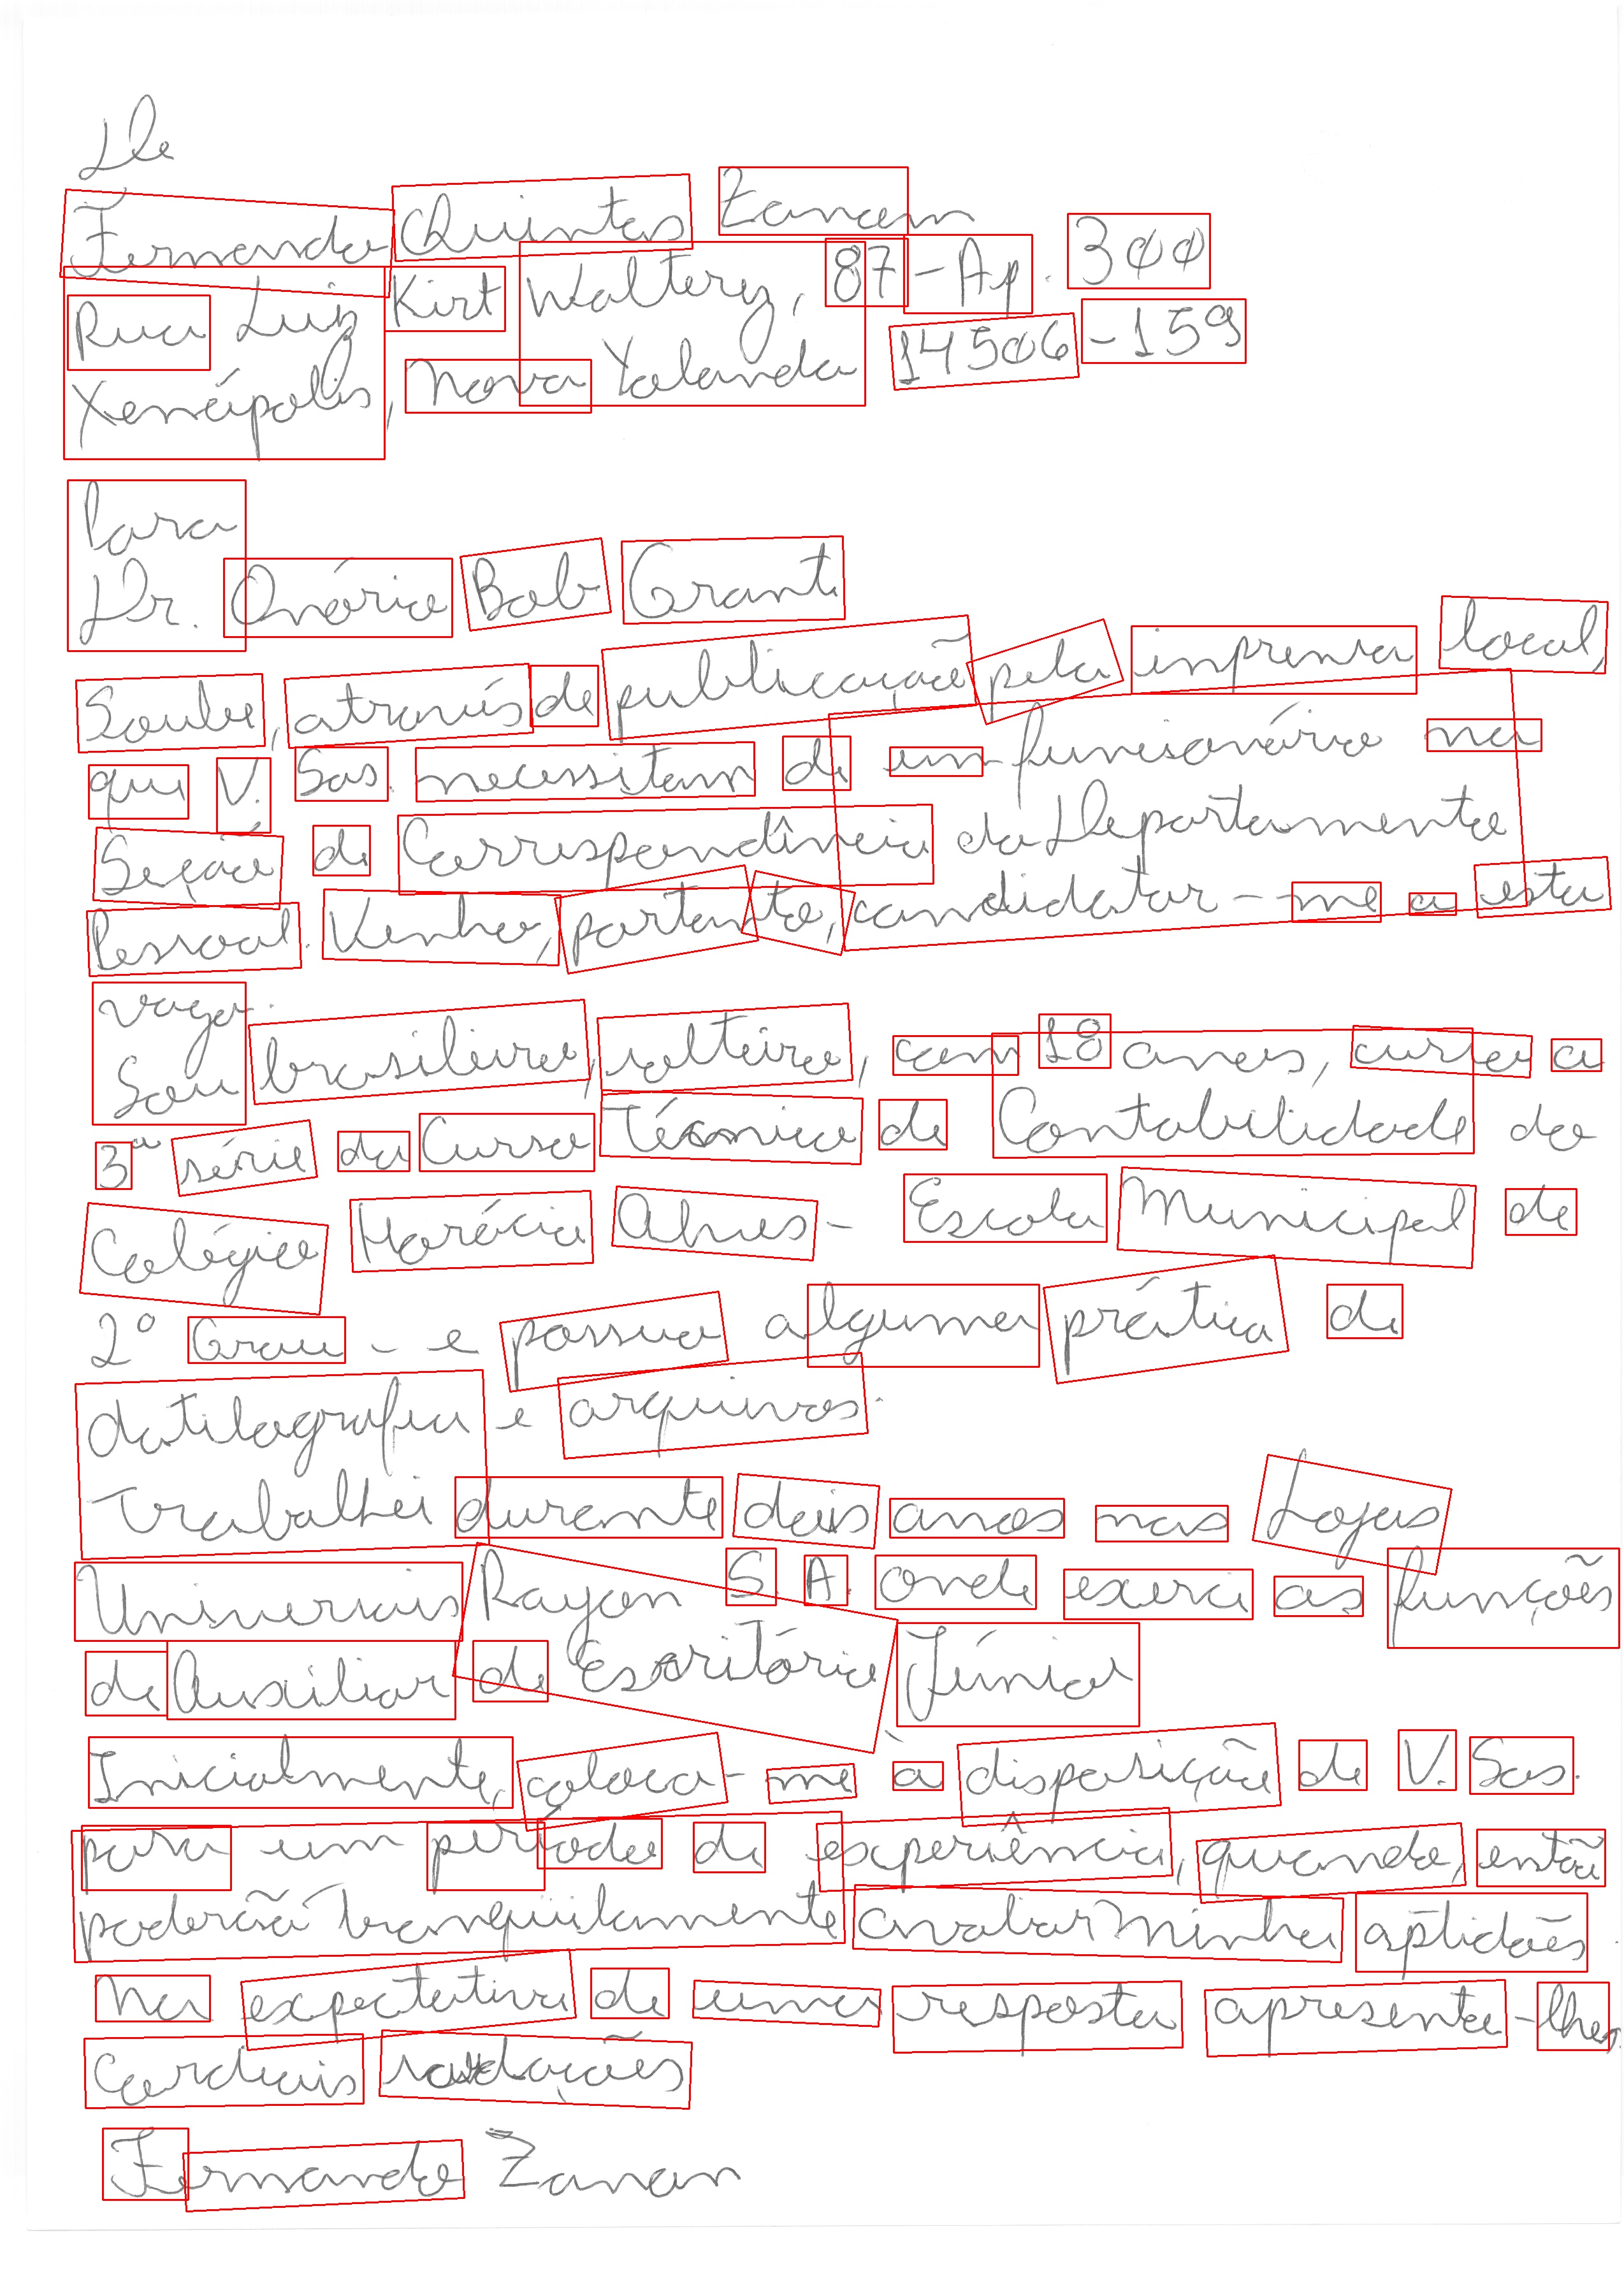 De
Fernando Quintas Zanam
Rua Luiz Kirt Walterz, 87 - Ap. 300
Xenápolis, Nova Yolanda 14506-159
Para
Dr. Onório Bob Grant
Soube, através de publicação pela imprensa local,
que V. Sas. necessitam de um funcionário na
Seção de Correspondência do Departamento
Pessoal. Venho, portanto, candidatar-me a esta
vaga.
Sou brasileiro, solteiro, com 18 anos, curso a
3ª série do Curso Técnico de Contabilidade do
Colégio Horácio Alves - Escola Municipal de
2º Grau - e possuo alguma prática de
datilografia e arquivos.
Trabalhei durante dois anos nas Lojas
Universais Rayon S. A. onde exerci as funções
de Auxiliar de Escritório Júnior
Inicialmente, coloco-me à disposição de V. Sas.
para um período de experiência, quando, então
poderão tranqüilamente avaliar minha aptidões.
Na expectativa de uma resposta apresento-lhes
Cordiais saudações
Fernando Zanon